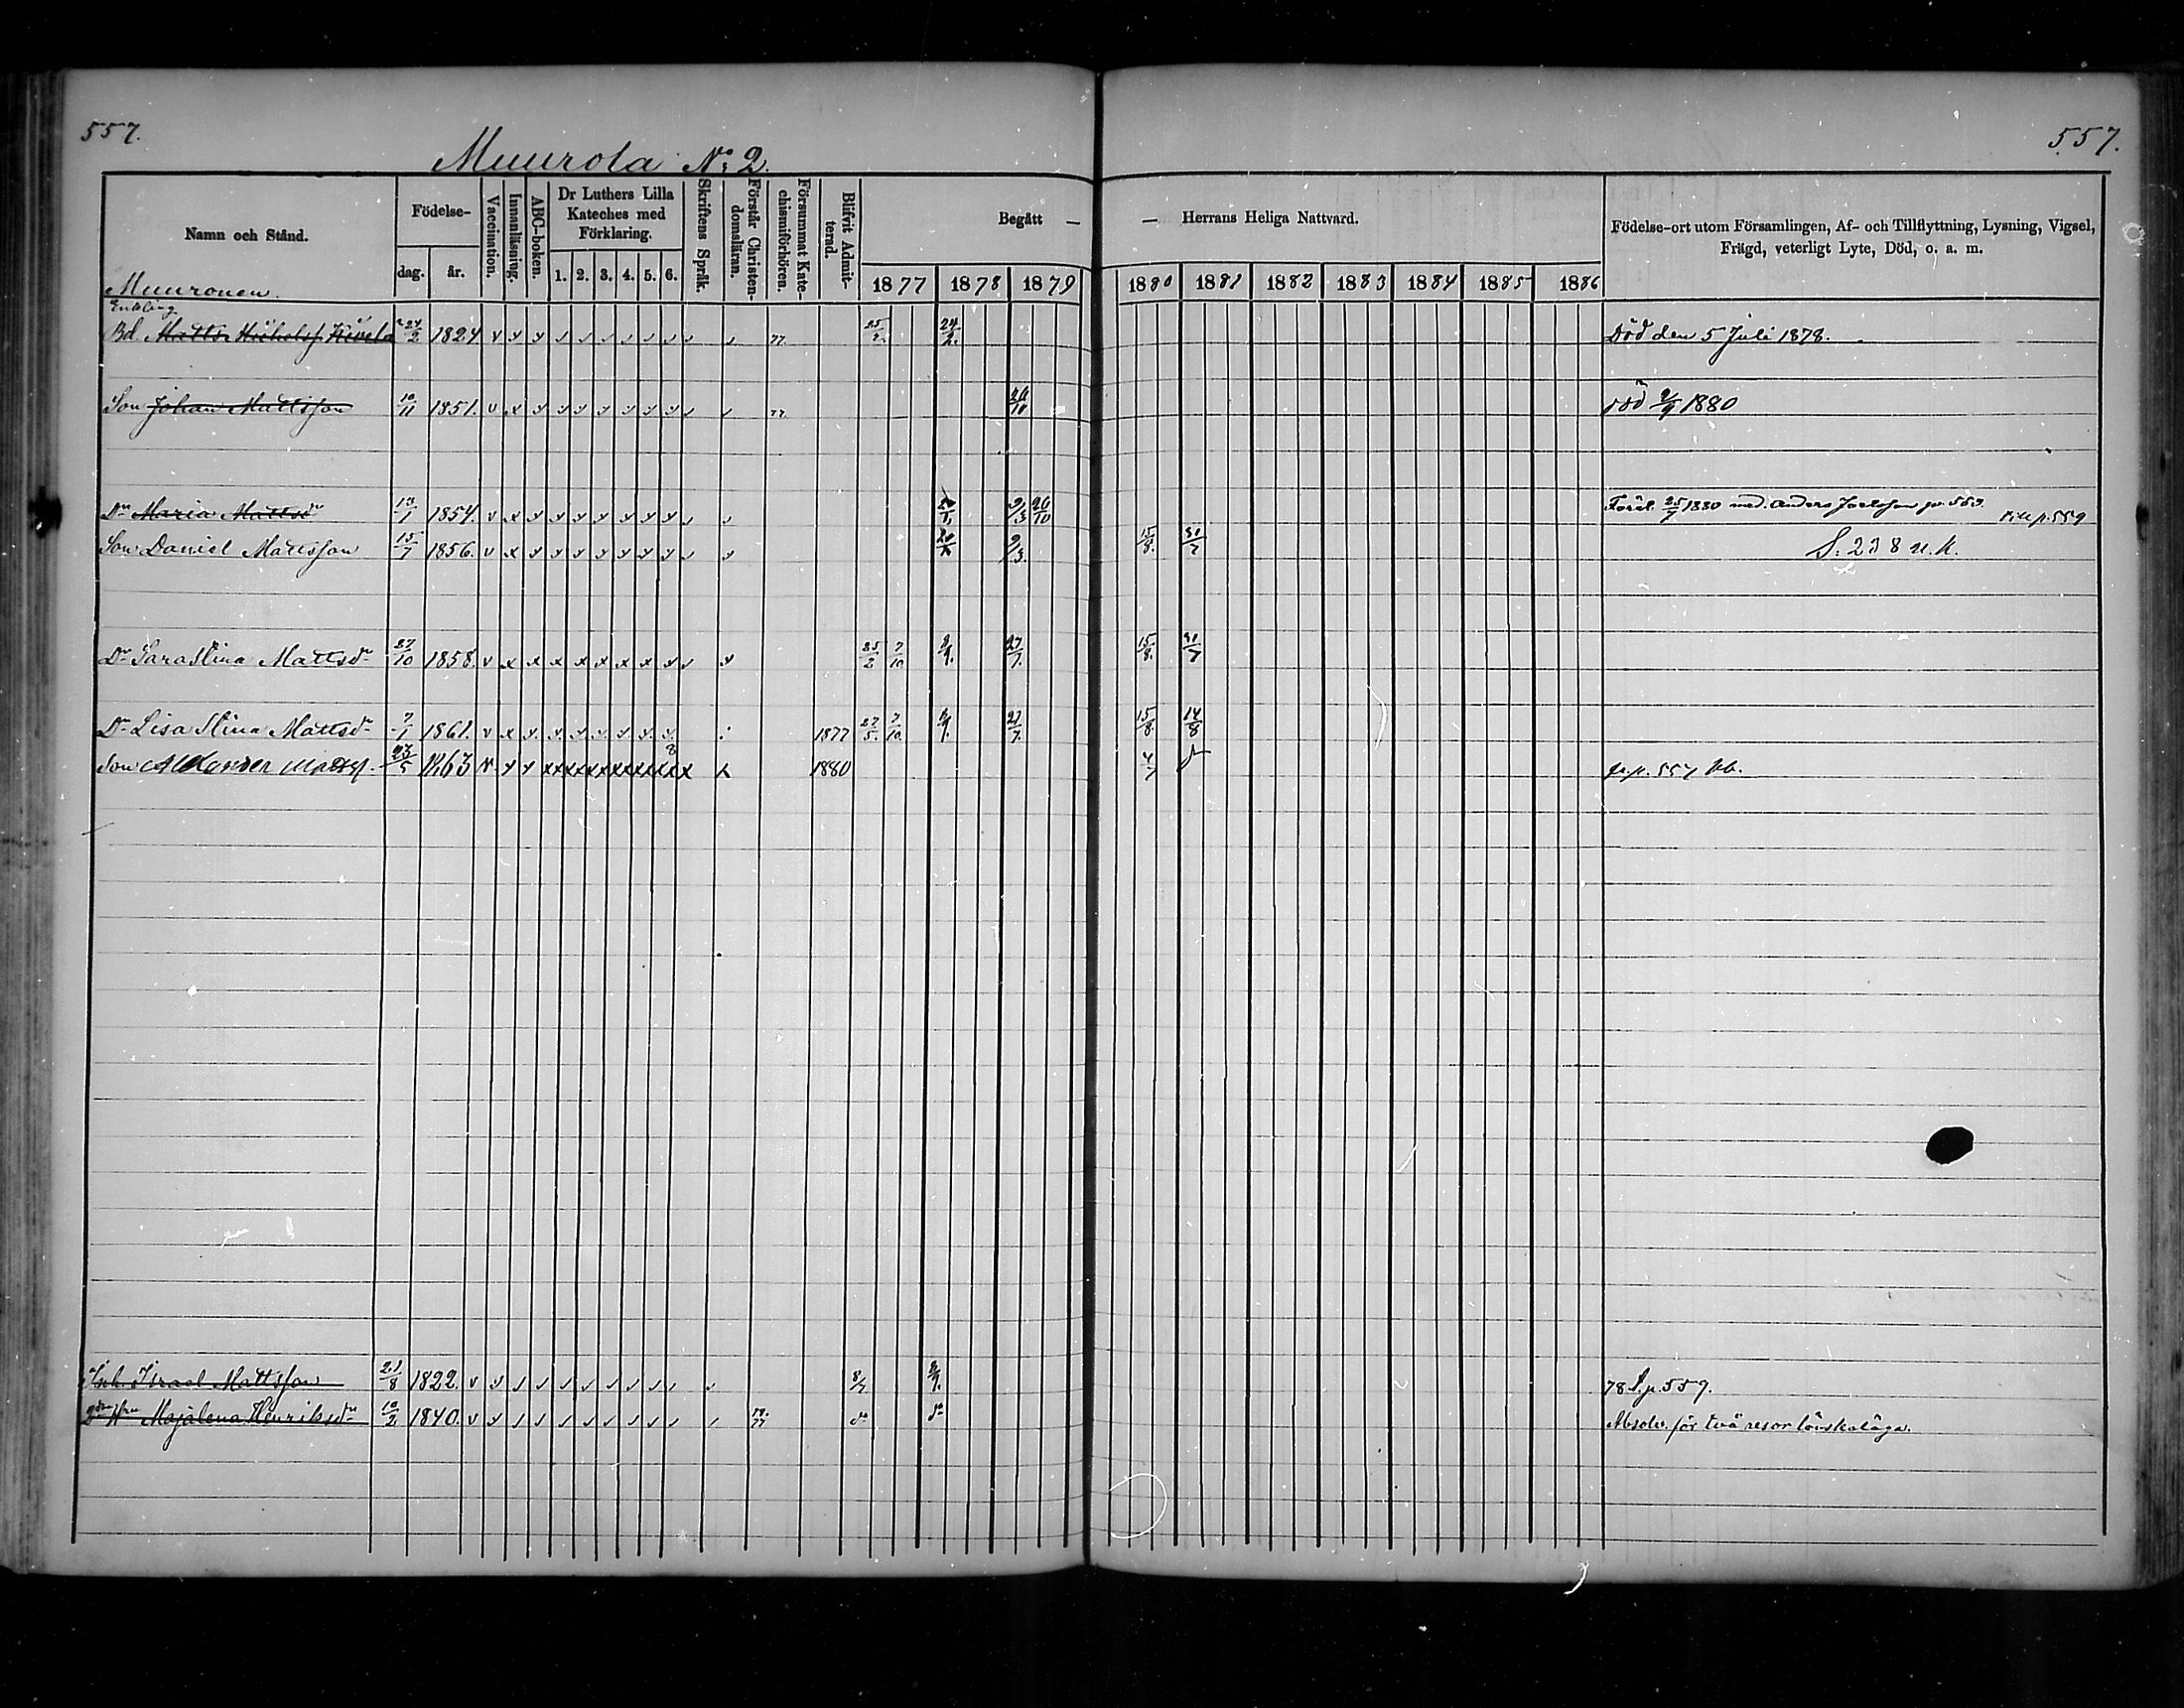 557.
557.
Muurola No 2.
Namn och Stånd.
Födelse-
dag. år.
Vaccination.
Innanläsning.
ABC-boken.
Dr Luthers Lilla
Kateches med
Förklaring.
1. 2. 3. 4. 5. 6.
Skriftens Språk.
Förstår Christen-
domsläran.
Försummat Kate-
chismiförhören.
Blifvit Admit-
terad.
Begått — — Herrans Heliga Nattvard.
1877 1878 1879 1880 1881 1882 1883 1884 1885 1886
Födelse-ort utom Församlingen, Af- och Tillflyttning, Lysning, Vigsel,
Frägd, veterligt Lyte, Död, o. a. m.
Muuronen.
Enkling
Bd. Matts 24/2 1824. v 77. 25/2. 24/2. Död den 5 Juli 1878.
Son Johan Mattsson 10/11 1851. v x 77. 26/10 död 1880
Dr Maria Mattsdr 1854. v x 9/3 26/10 Förel. 25/7 1880 med Anders Joelsson p. 553. till p. 559
Son Daniel Mattsson 15/7 1856. v x 9/3. 15/8. 31/7 S. 238 n. k.
Dr Sara Stina Mattsdr 27/10 1858. v x x x x x x x x 25/2 7/10 27/7. 15/8. 31/7
Dr Lisa Stina Mattsdr 7/1 1861. v x 1877 27/5. 7/10. 27/7. 15/8. 14/8
Son Alexander Matts. 23/5 1863 1880 4/7 fr. p. 557 kb.
Inh. Israel Mattsson 21/8 1822. v 8/7 78 S. p. 559.
Hru Majalena Henriksdr 10/2 1840. v do do Absolv. för två resor löiskaläge.